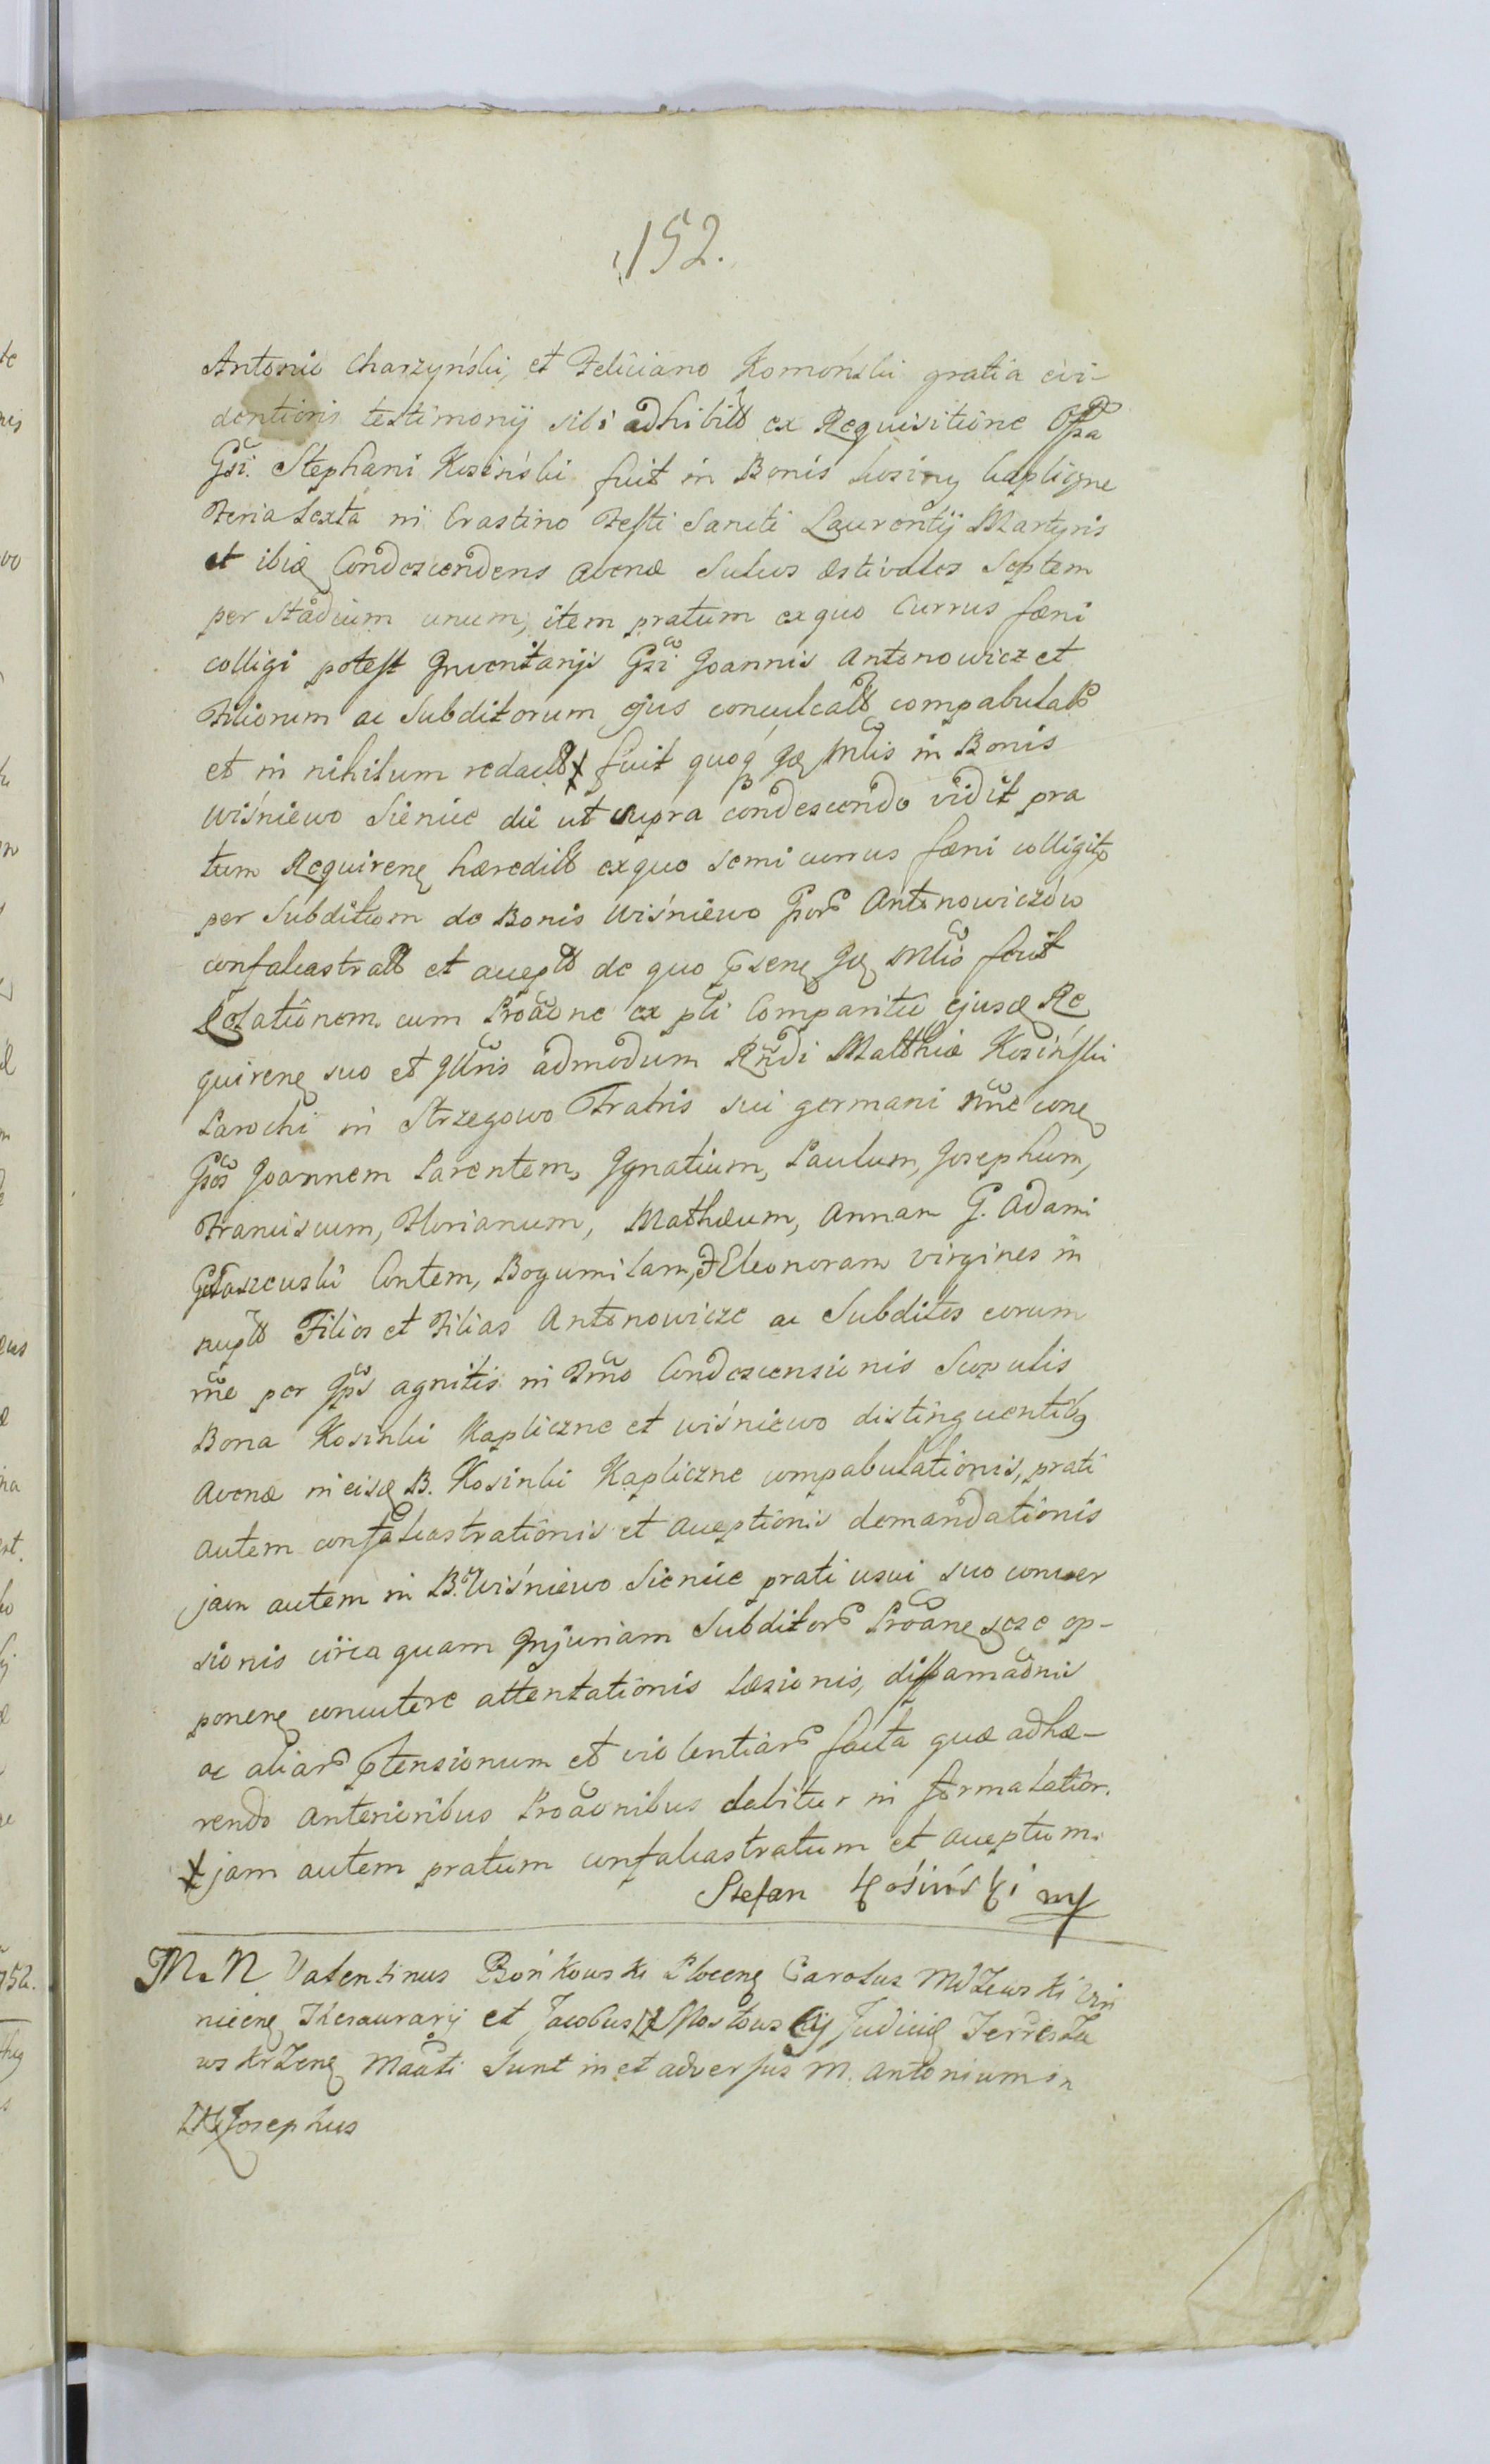 152.
Antonio Charzyński, et Feliciano Komoński gratia evi-
dentioris testimonij sibi adhibitis ex Requisitione
Gsi. Stephani Kosiński fuit in Bonis Kosiny Kapliczne
Feria Sexta in Crastino Festi Sancti Laurentij Martyris
et ibiq Condescendens avenæ Sulcos æstivales Septem
per Stadium unum, item pratum ex quo Currus fæni
colligi potest Inventarijs Gsi Joannis Antonowicz et
Filiorum ac Subditorum ejus conculcatt compabulatt
et in nihilum redactt fuit quoq in Bonis
Wiśniewo Sienice die ut supra condescendo vidit pra
tum Requirenę hæreditt ex quo semi currus fæni colligitr
per Subditum de Bonis Wiśniewo Gsor Antonowiczów
confalcastratt et acceptt de quo fecit
Relationem cum Proãone ex pti Comparitii ejusd Re
quirenę suo et admodum Rndi Matthiæ Kosiński
Parochi in Strzegowo Fratris sui germani nne conę
Gsos Joannem Parentem, Ignatium, Paulum, Josephum,
Franciscum, Florianum, Mathæum, Annam G. Adami
Contem, Bogumilam, Eleonoram virgines in
nuptt Filios et Filias Antonowicze ac Subditos eorum
rne per Ipos agnitis in Tmo Condescensionis Scopulis
Bona Kosinki Kapliczne et Wiśniewo distinguentibq
Avenæ in eisd B. Kosinki Kapliczne compabulationis, prati
autem confalcastrationis et acceptionis demandationis
jam autem in B. Wiśniewo Sienice prati usui suo conver
sionis circa quam Injuriam Subditor Proãnę sese op-
ponenę concutere attentationis læsionis, diffamãonis
ac aliar ptensionum et violentiar facta quæ adhæ-
rendo anterioribus Proãonibus dabitur in forma latior.
jam autem pratum confalcastratum et acceptum.
Stefan Kośiński mp
M. N Valentinus Bońkowski Plocenę Carolus
Thesaurarij et Jacobus Mostowski Judicię
Mãati Sunt in et adversus M. Antonium in
Josephus